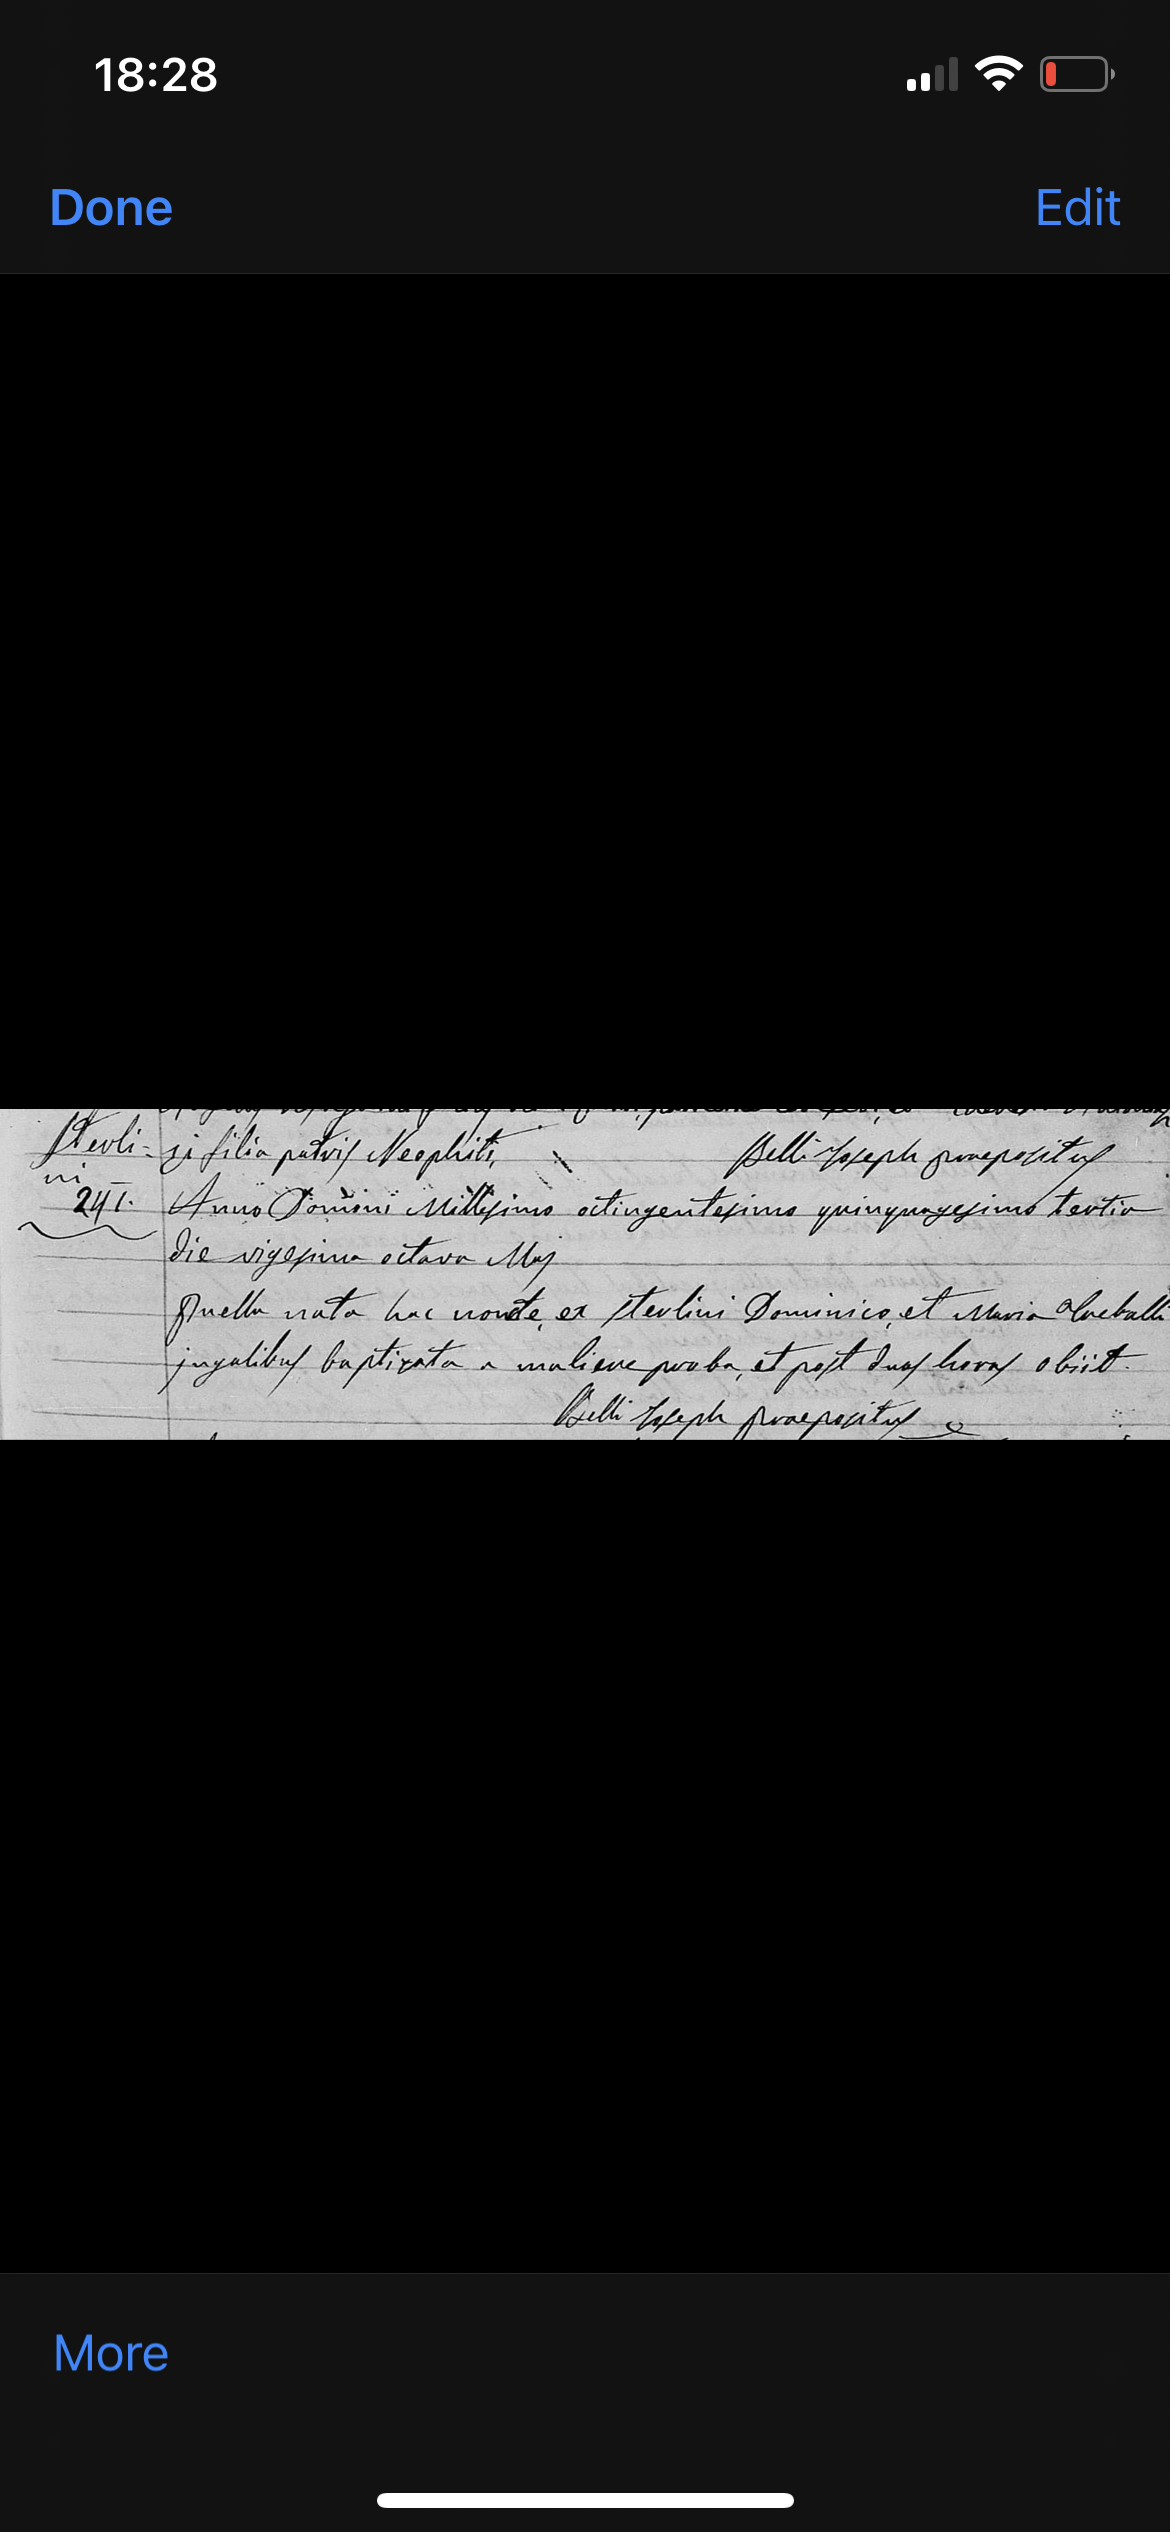 18:28
Done
Edit
Sterli- zi filia patris Neophiti, Belli Joseph praepositus
ni
241. Anno Domini Millesimo octingentesimo quinquagesimo tertio
die vigesima octava Maj
Puella nata hac nocte, ex Sterlini Dominico, et Maria
jugalibus baptizata a muliere proba, et post duas horas obiit.
Belli Joseph praepositus
More